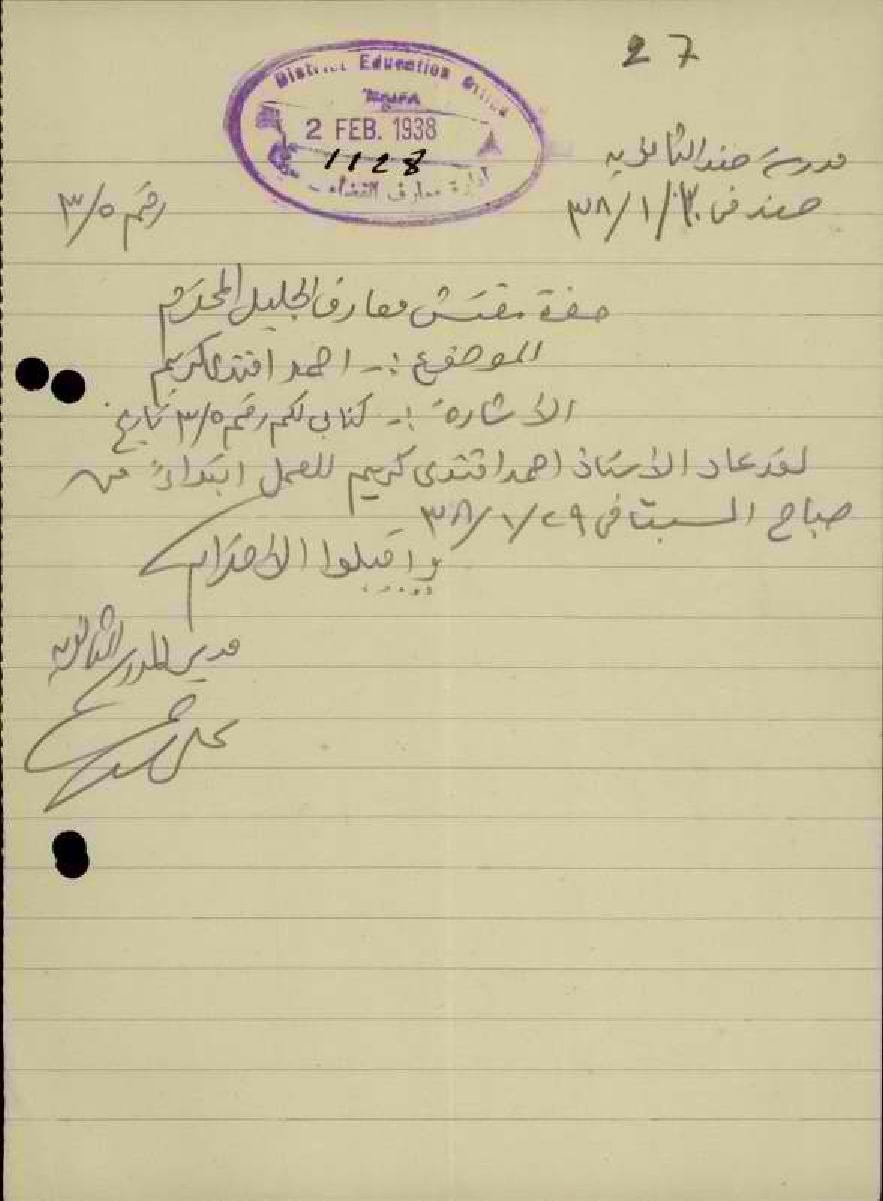 27
District Education Office
HAIFA
2 FEB. 1938
1128
ادارة معارف القضاء
مدرسة صفد الثانويه
صفد في ٣٠/١/٣٨
رقم ٣/٥
حضرة مفتش معارف الجليل المحترم
الموضوع :- احمد افندي كريم
الاشارة :- كتابي لكم رقم ٣/٥ تاريخ
لقد عاد الاستاذ احمد افندي كريم للعمل ابتداءً من
صباح السبت في ٢٩/١/٣٨
واقبلوا الاحترام
مدير المدرسة الثانويه